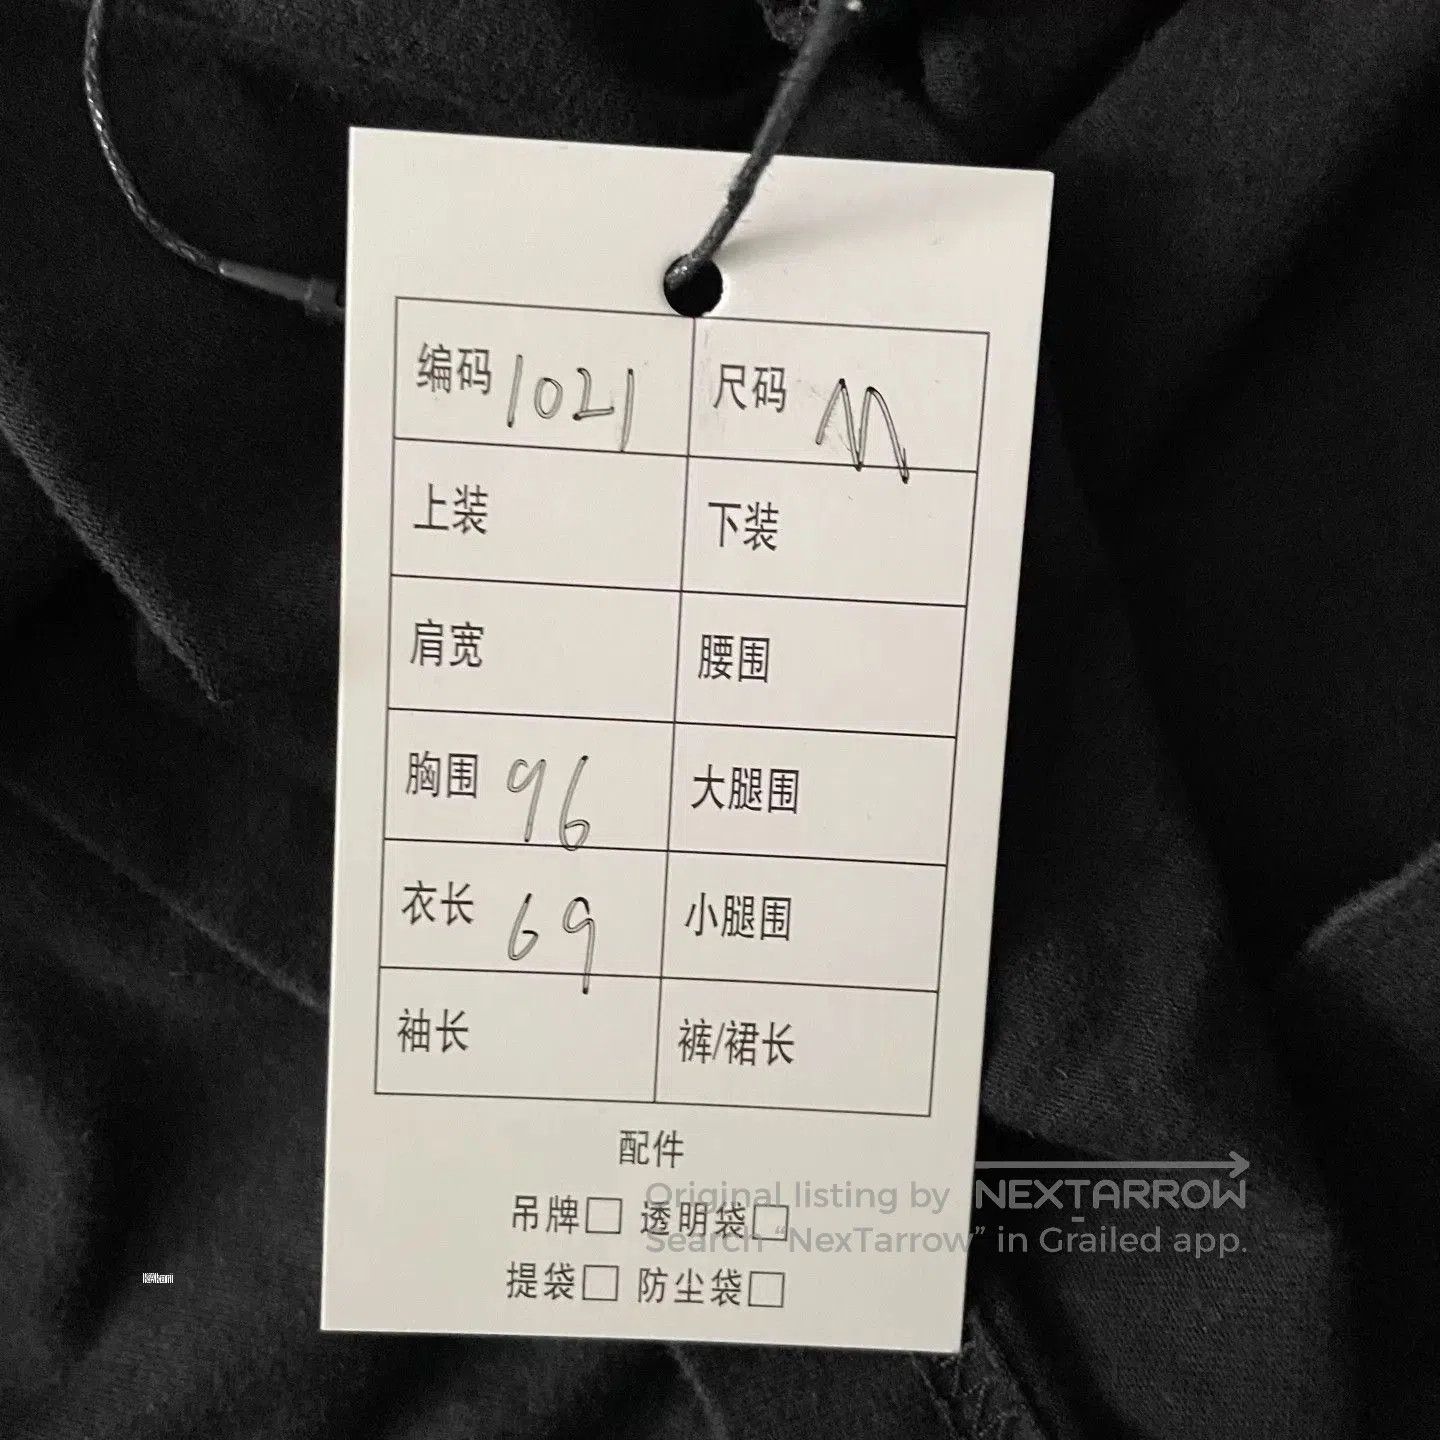 编码 1021 尺码 M
上装 下装
肩宽 腰围
胸围 96 大腿围
衣长 69 小腿围
袖长 裤/裙长
配件
吊牌□ 透明袋□
提袋□ 防尘袋□
Original listing by NEXTARROW
Search “NexTarrow” in Grailed app.